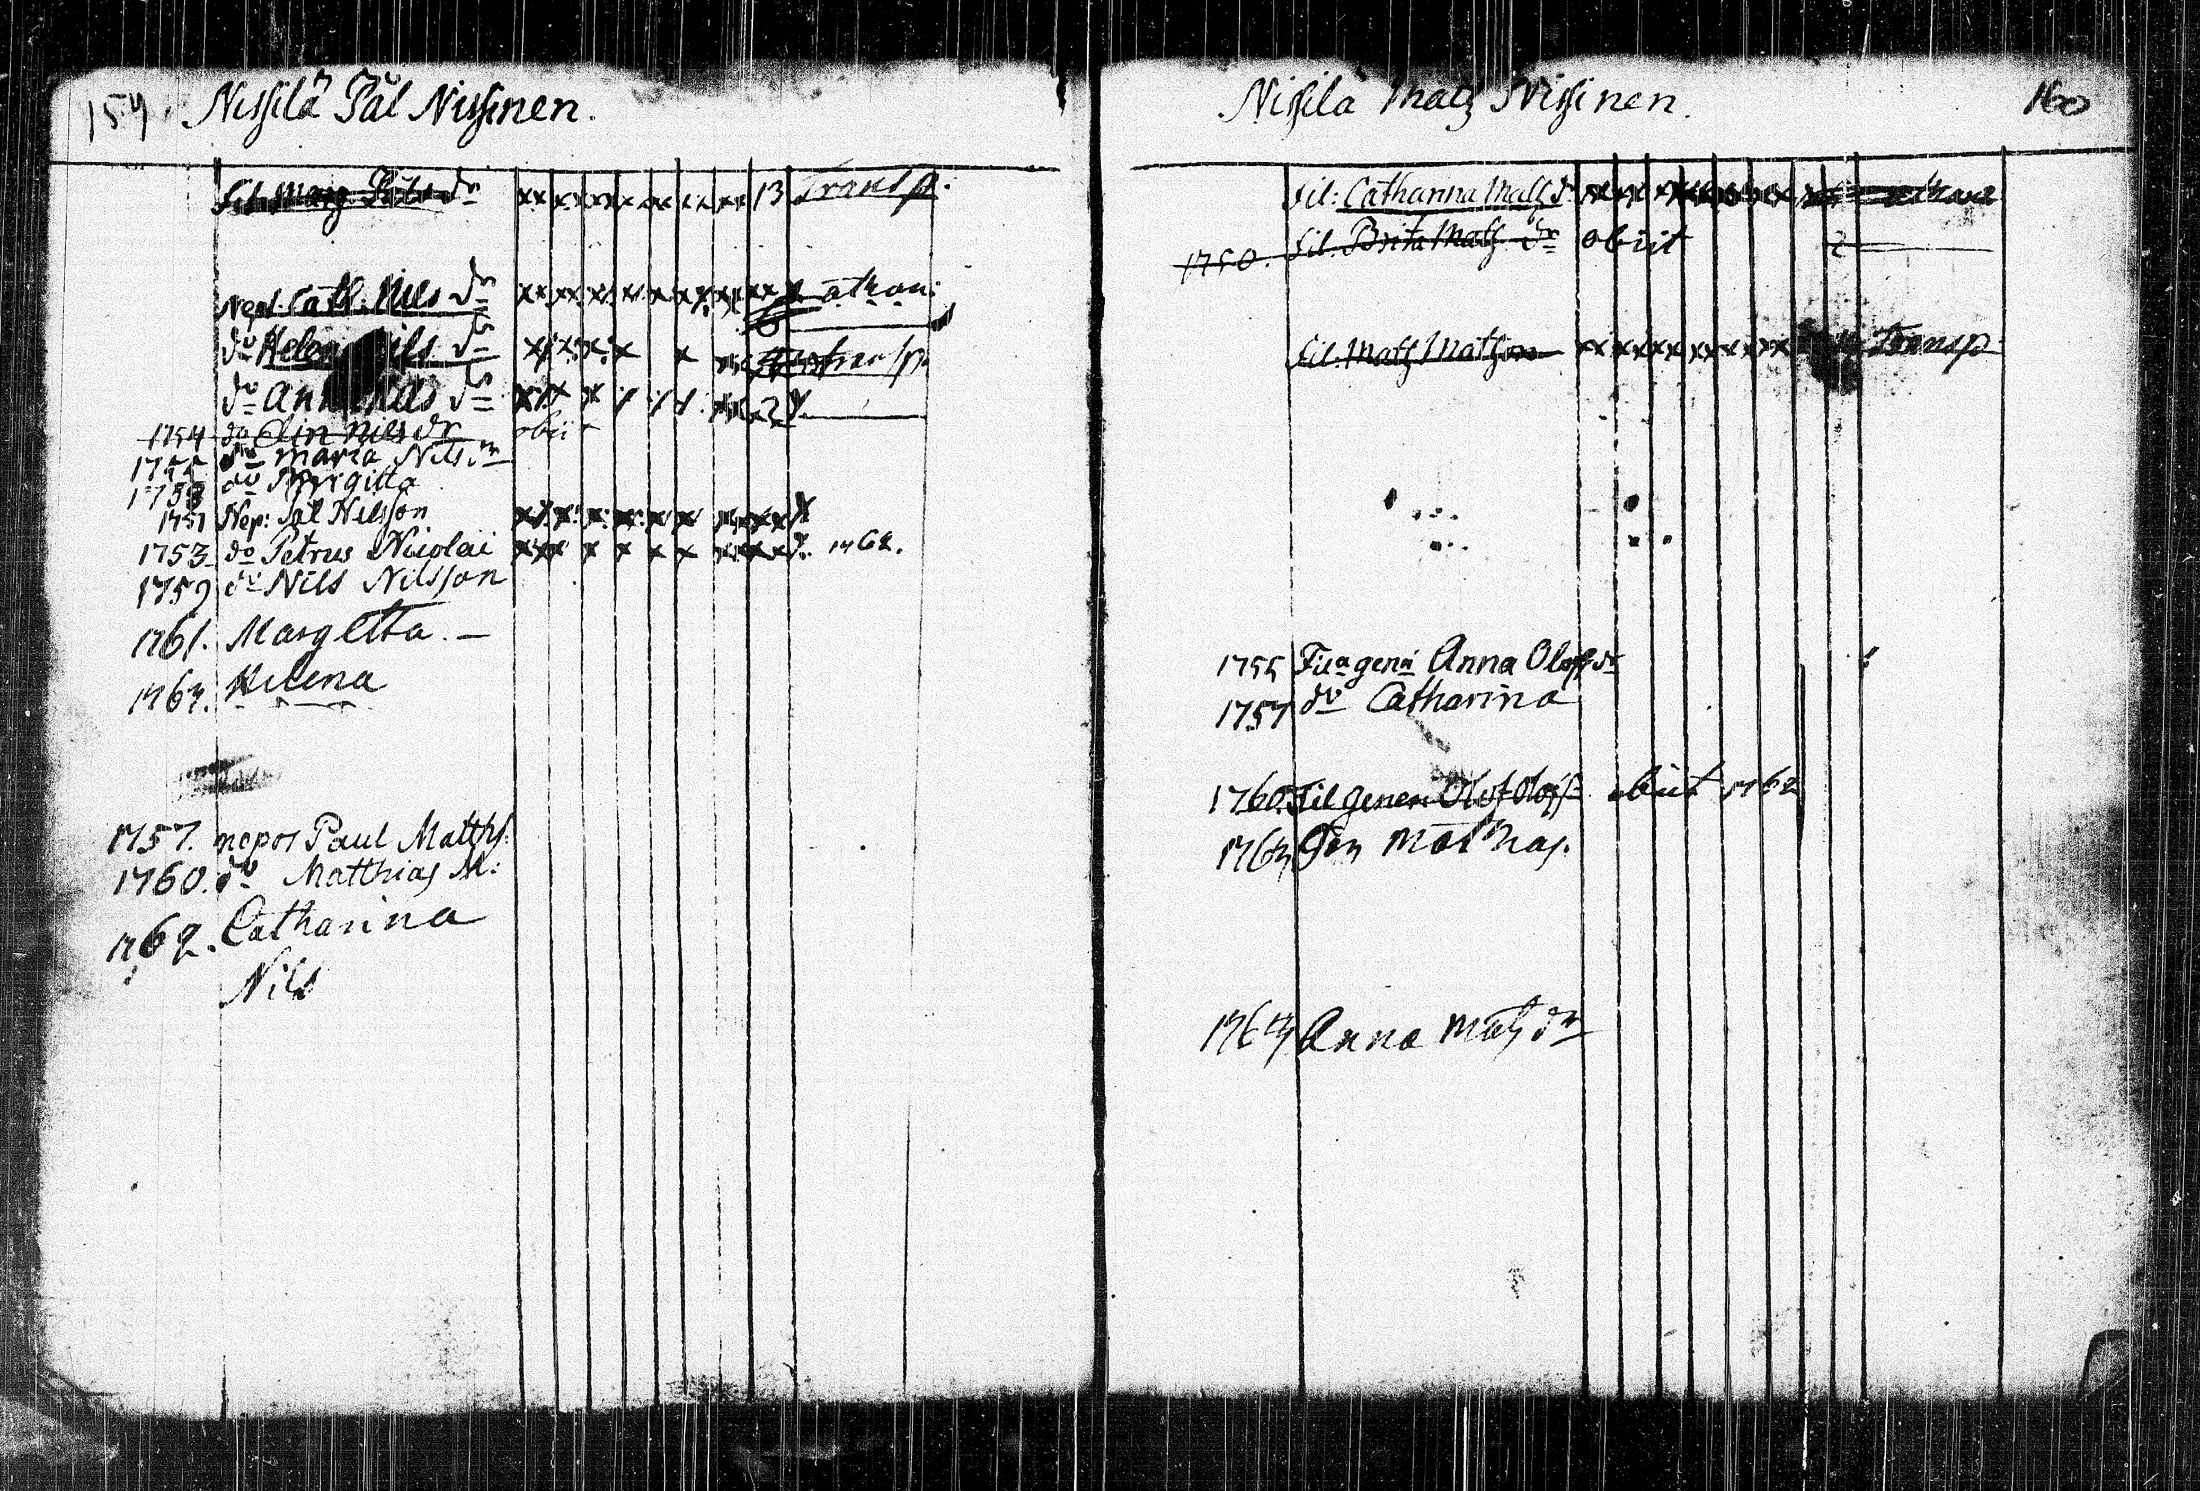 159. Nissilä Pål Nissinen.
fil. Marg Påls dr xx x xx x xx xx xx 13 Transp.
Nep. Cath. Nils dr xx xx x x x x x x xx
do Helena Nils dr x x x x x Transp.
do Anna Nils dr x x x x x x 2
1754 do Elin Nils dr obiit
1755 do Maria Nils dr
1758 do Birgitta
1751 Nep: Pål Nilsson x x x x x x x x x x
1753 do Petrus Nicolai xx x x x x x x x x x 1762.
1759 do Nils Nilsson
1761. Margetta. —
1763. Helena
1757. nepos Paul Matths:
1760. do Matthias M:
1762. Catharina
Nils
Nissilä Matz Nissinen. 160
fil: Catharina Matz dr
1750. fil. Brita Matz dr obiit 2
fil. Matz Matsson xx x x x x x x x x x Transp
1755 Fil a gen i Anna Olofs dr
1757 do Catharina
1760. Fil generi Olof Olofss obiit 1762
1763 Gen Mathias.
1763 Anna Matz dr